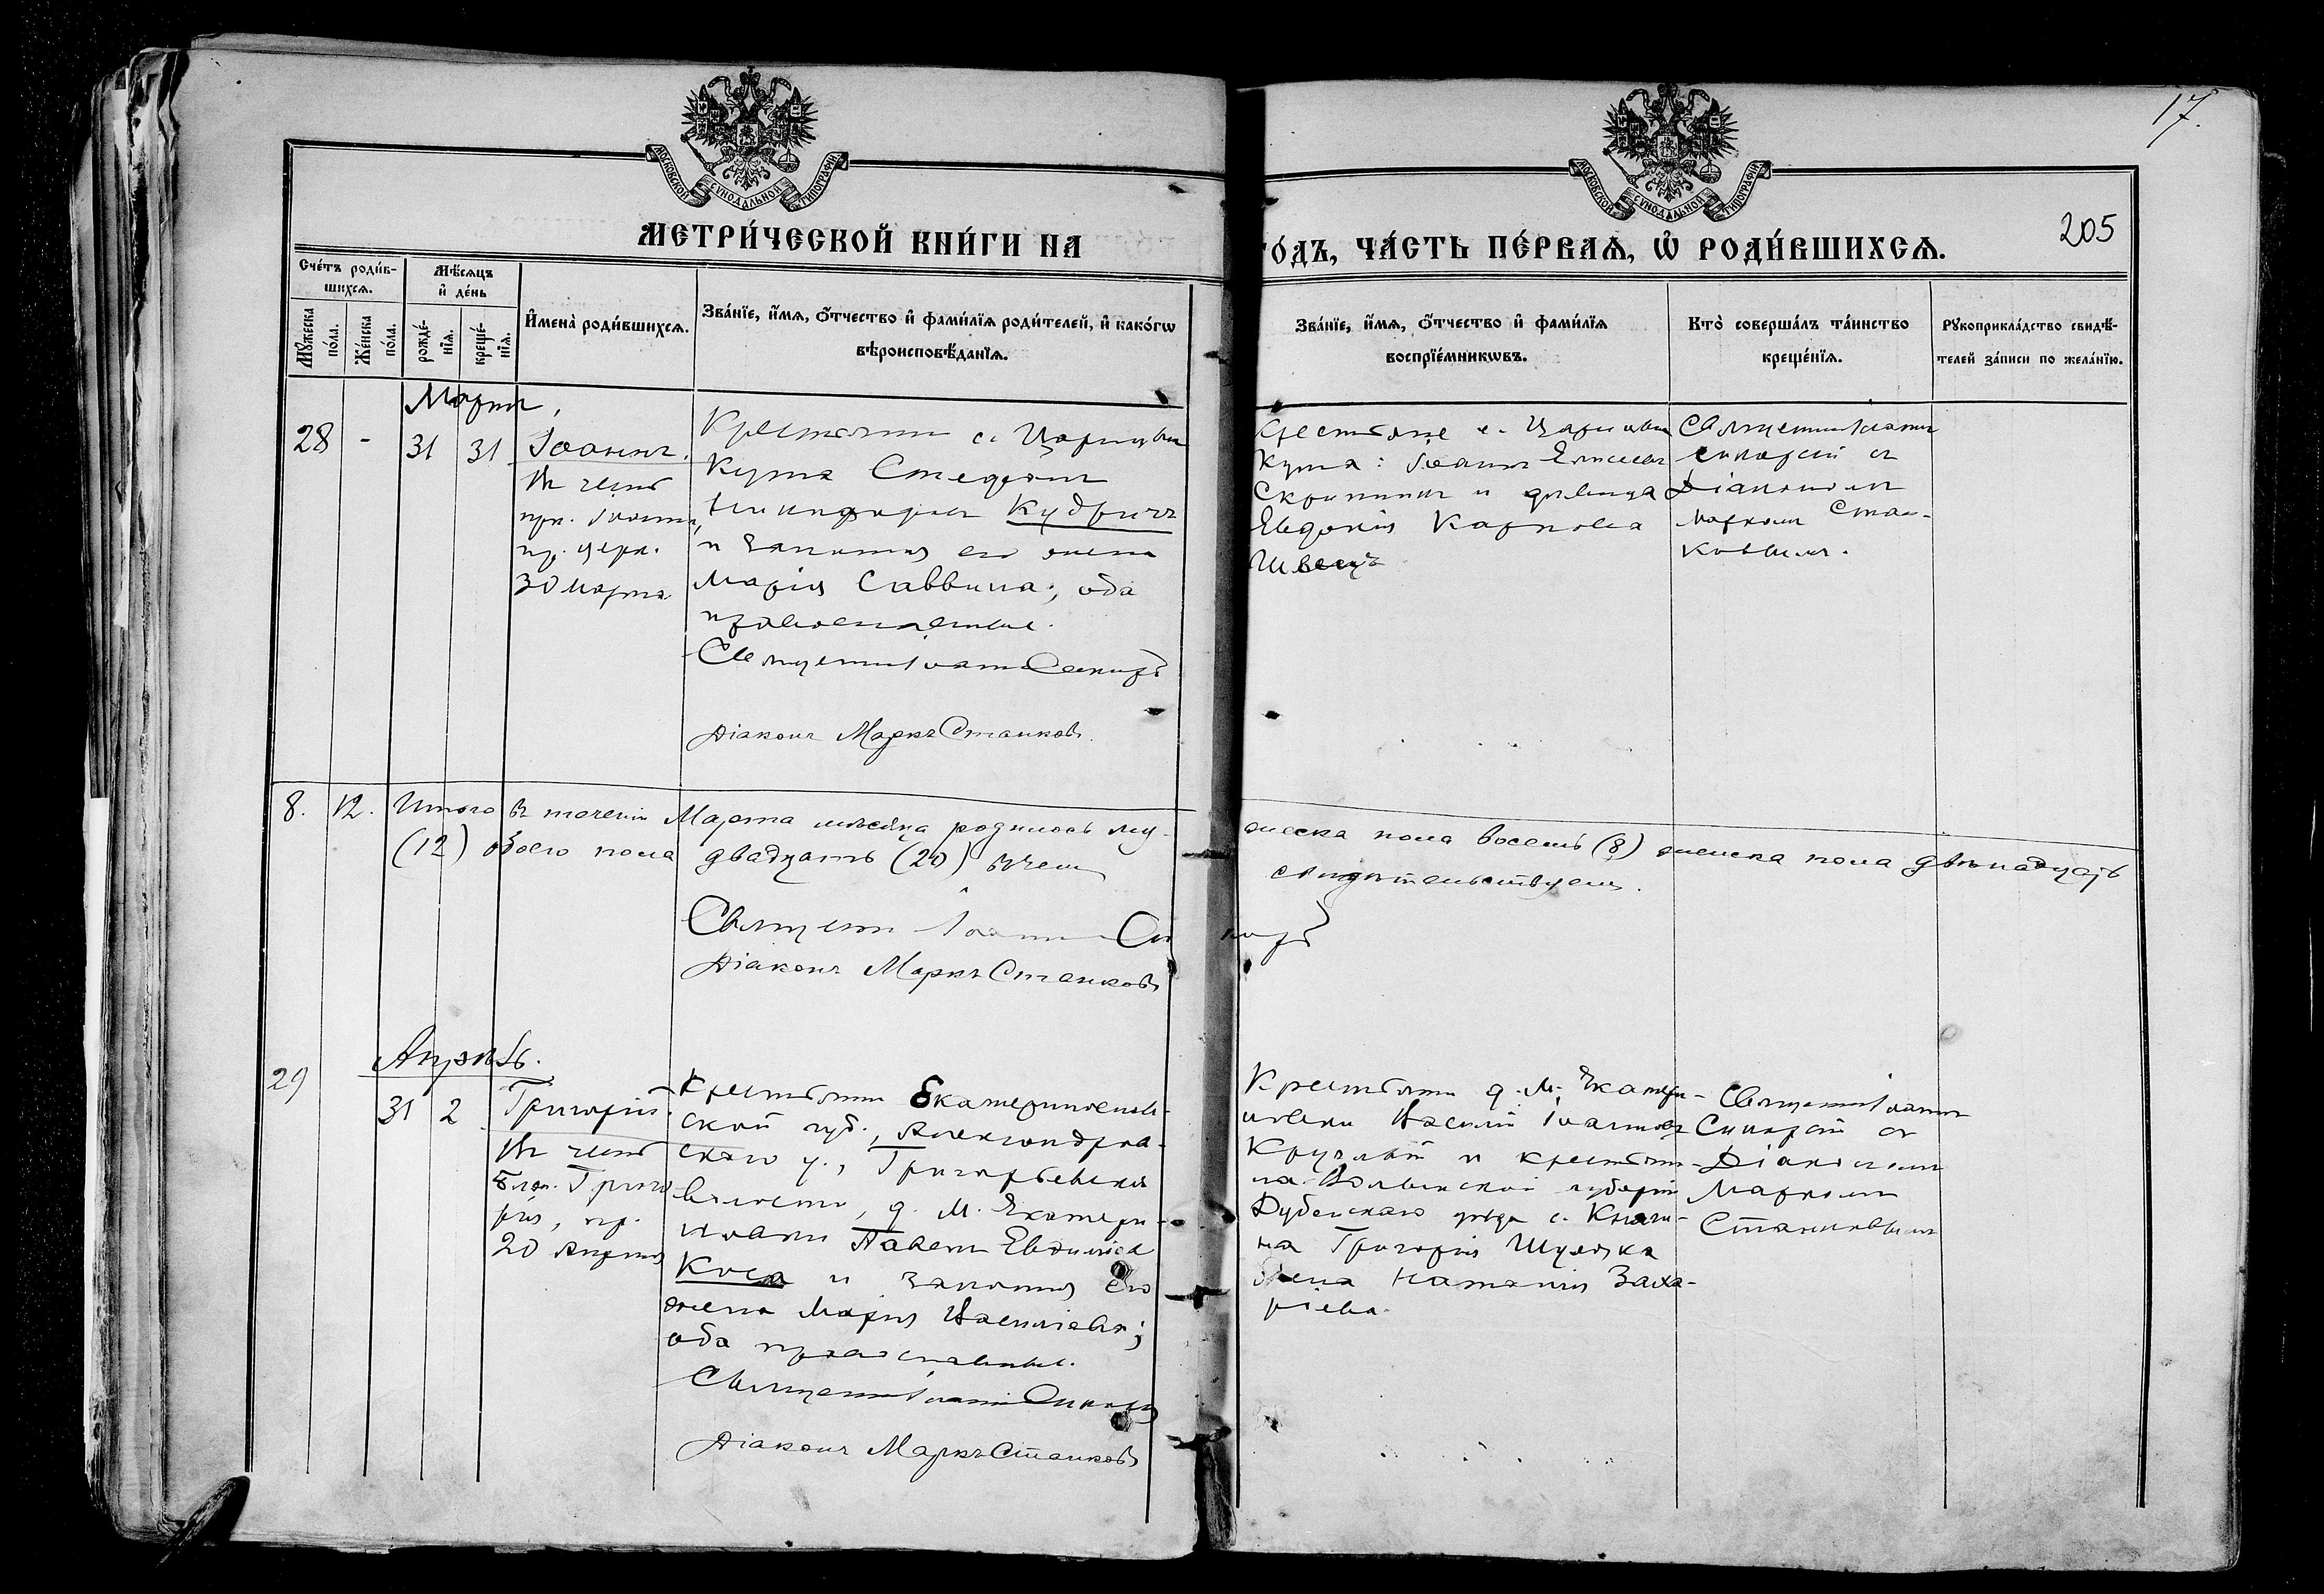 17.
205
МОСКОВСКОЙ СѴНОДАЛЬНОЙ ТИПОГРАФІИ
МОСКОВСКОЙ СѴНОДАЛЬНОЙ ТИПОГРАФІИ
МЕТРИ́ЧЕСКОЙ КНИ́ГИ НА
ГО́ДЪ, ЧА́СТЬ ПЕ́РВАѦ, Ѡ҆ РОДИ́ВШИХСѦ.
Сче́тъ роди́в-
шихсѧ.
Мѣ́сѧцъ
и҆ де́нь
Мꙋ́жеска
по́ла.
Же́нска
по́ла.
рожде́-
нїѧ.
креще́-
нїѧ.
И҆мена̀ роди́вшихсѧ.
Зва́нїе, и҆́мѧ, ѻ҆́тчество и҆ фами́лїѧ роди́телей, и҆ како́гѡ
вѣроисповѣ́данїѧ.
Зва́нїе, и҆́мѧ, ѻ҆́тчество и҆ фами́лїѧ
воспрїе́мникѡвъ.
Кто̀ соверша́лъ та́инство
креще́нїѧ.
Рꙋкоприкла́дство свидѣ́-
телей за́писи по жела́нїю.
Мартъ,
28 - 31 31 Іоаннъ.
Въ честь
пр. Іоанна,
пр. церк.
30 марта
Крестьянинъ с. Царицына
Кута Стефанъ
Никифоровъ Кудричъ
и законная его жена
Марія Саввина; оба
православные.
Священн Іоаннъ
Діаконъ Маркъ Станковъ
Крестьяне с. Царицына
Кута: Іоаннъ Елисеевъ
и девица
Евдокія Карпова
Швецъ
Священникъ Іоаннъ
съ
Діакономъ
Маркомъ Стан-
ковымъ.
8. 12. Итого въ теченіи Марта мѣсяца родилось му-
жеска пола восемь (8) женска пола двѣнадцать
(12) обоего пола двадцать (20) въ чемъ
свидѣтельствуемъ.
Священн Іоаннъ
Діаконъ Маркъ Станковъ
Апрѣль.
29 31 2 Григорій.
Въ честь
Григо-
рія, пр.
20 Апрѣля
Крестьянинъ Екатеринослав-
ской губ., Александров-
скаго у., Григорьевской
волости, д. М. Екатери-
новки Павелъ
Коса и законная его
жена Марія Василіева;
оба православные.
Священн Іоаннъ
Діаконъ Маркъ Станковъ
Крестьянинъ д. М. Екатери-
новки Василій Іоанновъ
и крестьян-
ка Волынской губерніи
Дубенскаго уѣзда с. Княги-
на Григорія
жена Наталія Заха-
ріева.
Священникъ Іоаннъ
съ
Діакономъ
Маркомъ
Станковымъ